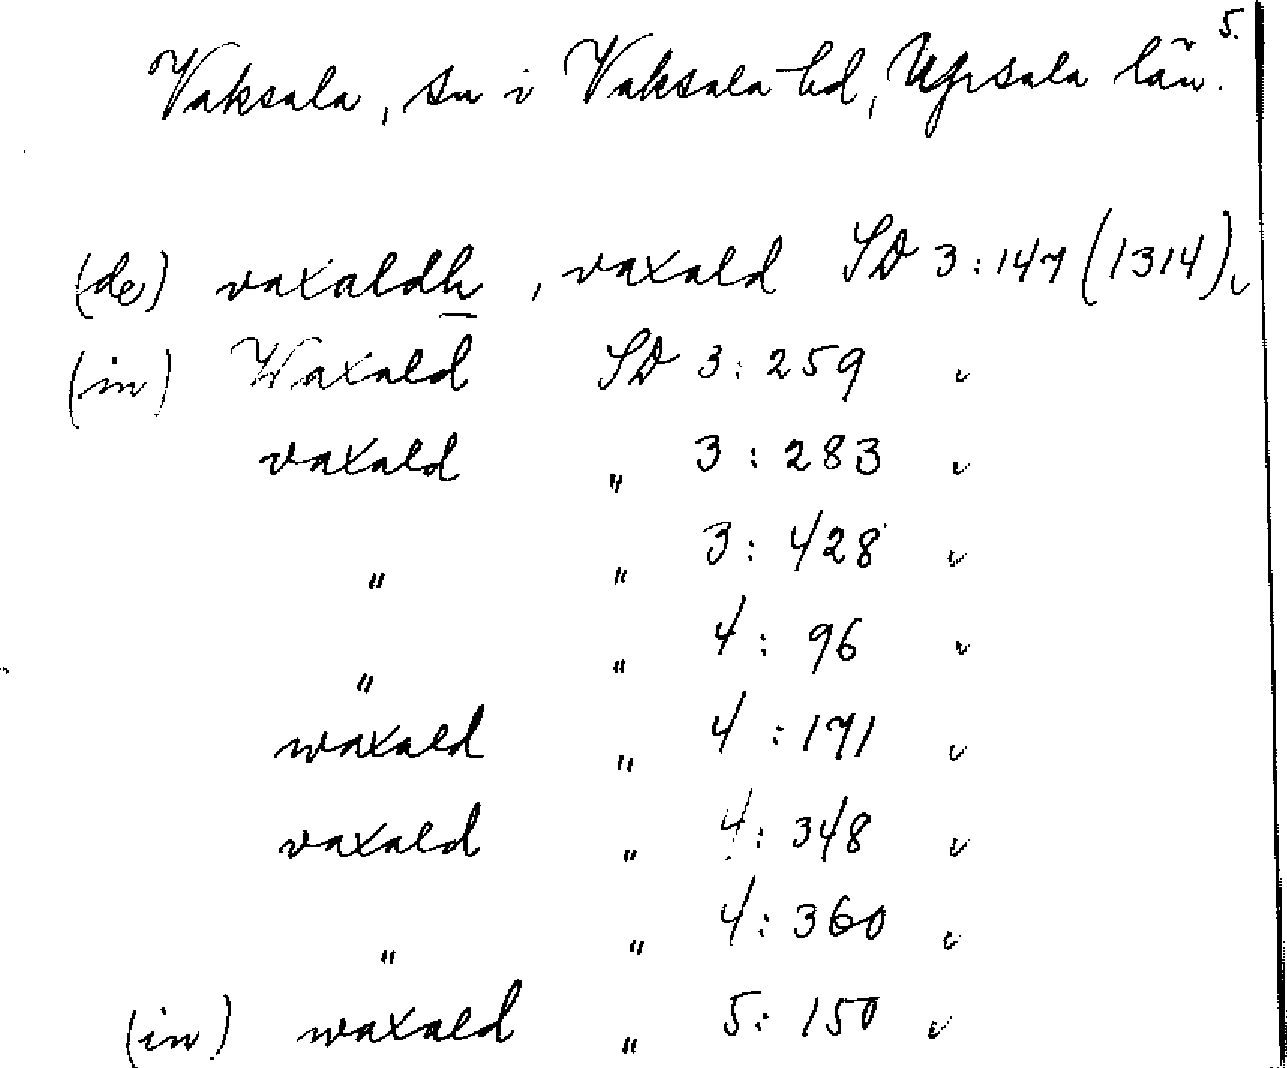 5.
Vaksala, sn i Vaksala hd, Upsala län.
(de) vaxaldh, vaxald SD 3:147 (1314) ✓
(in) Waxald SD 3:259 ✓
vaxald " 3:283 ✓
" " 3:428 ✓
" " 4:96 ✓
waxald " 4:171 ✓
vaxald " 4:348 ✓
" " 4:360 ✓
(in) waxald " 5:150 ✓